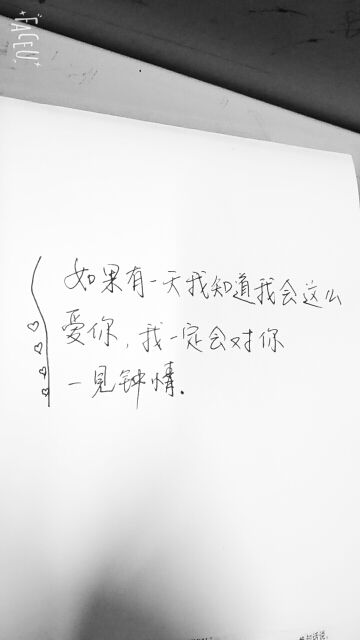 FACEU
如果有一天我知道我会这么
爱你，我一定会对你
一見钟情.